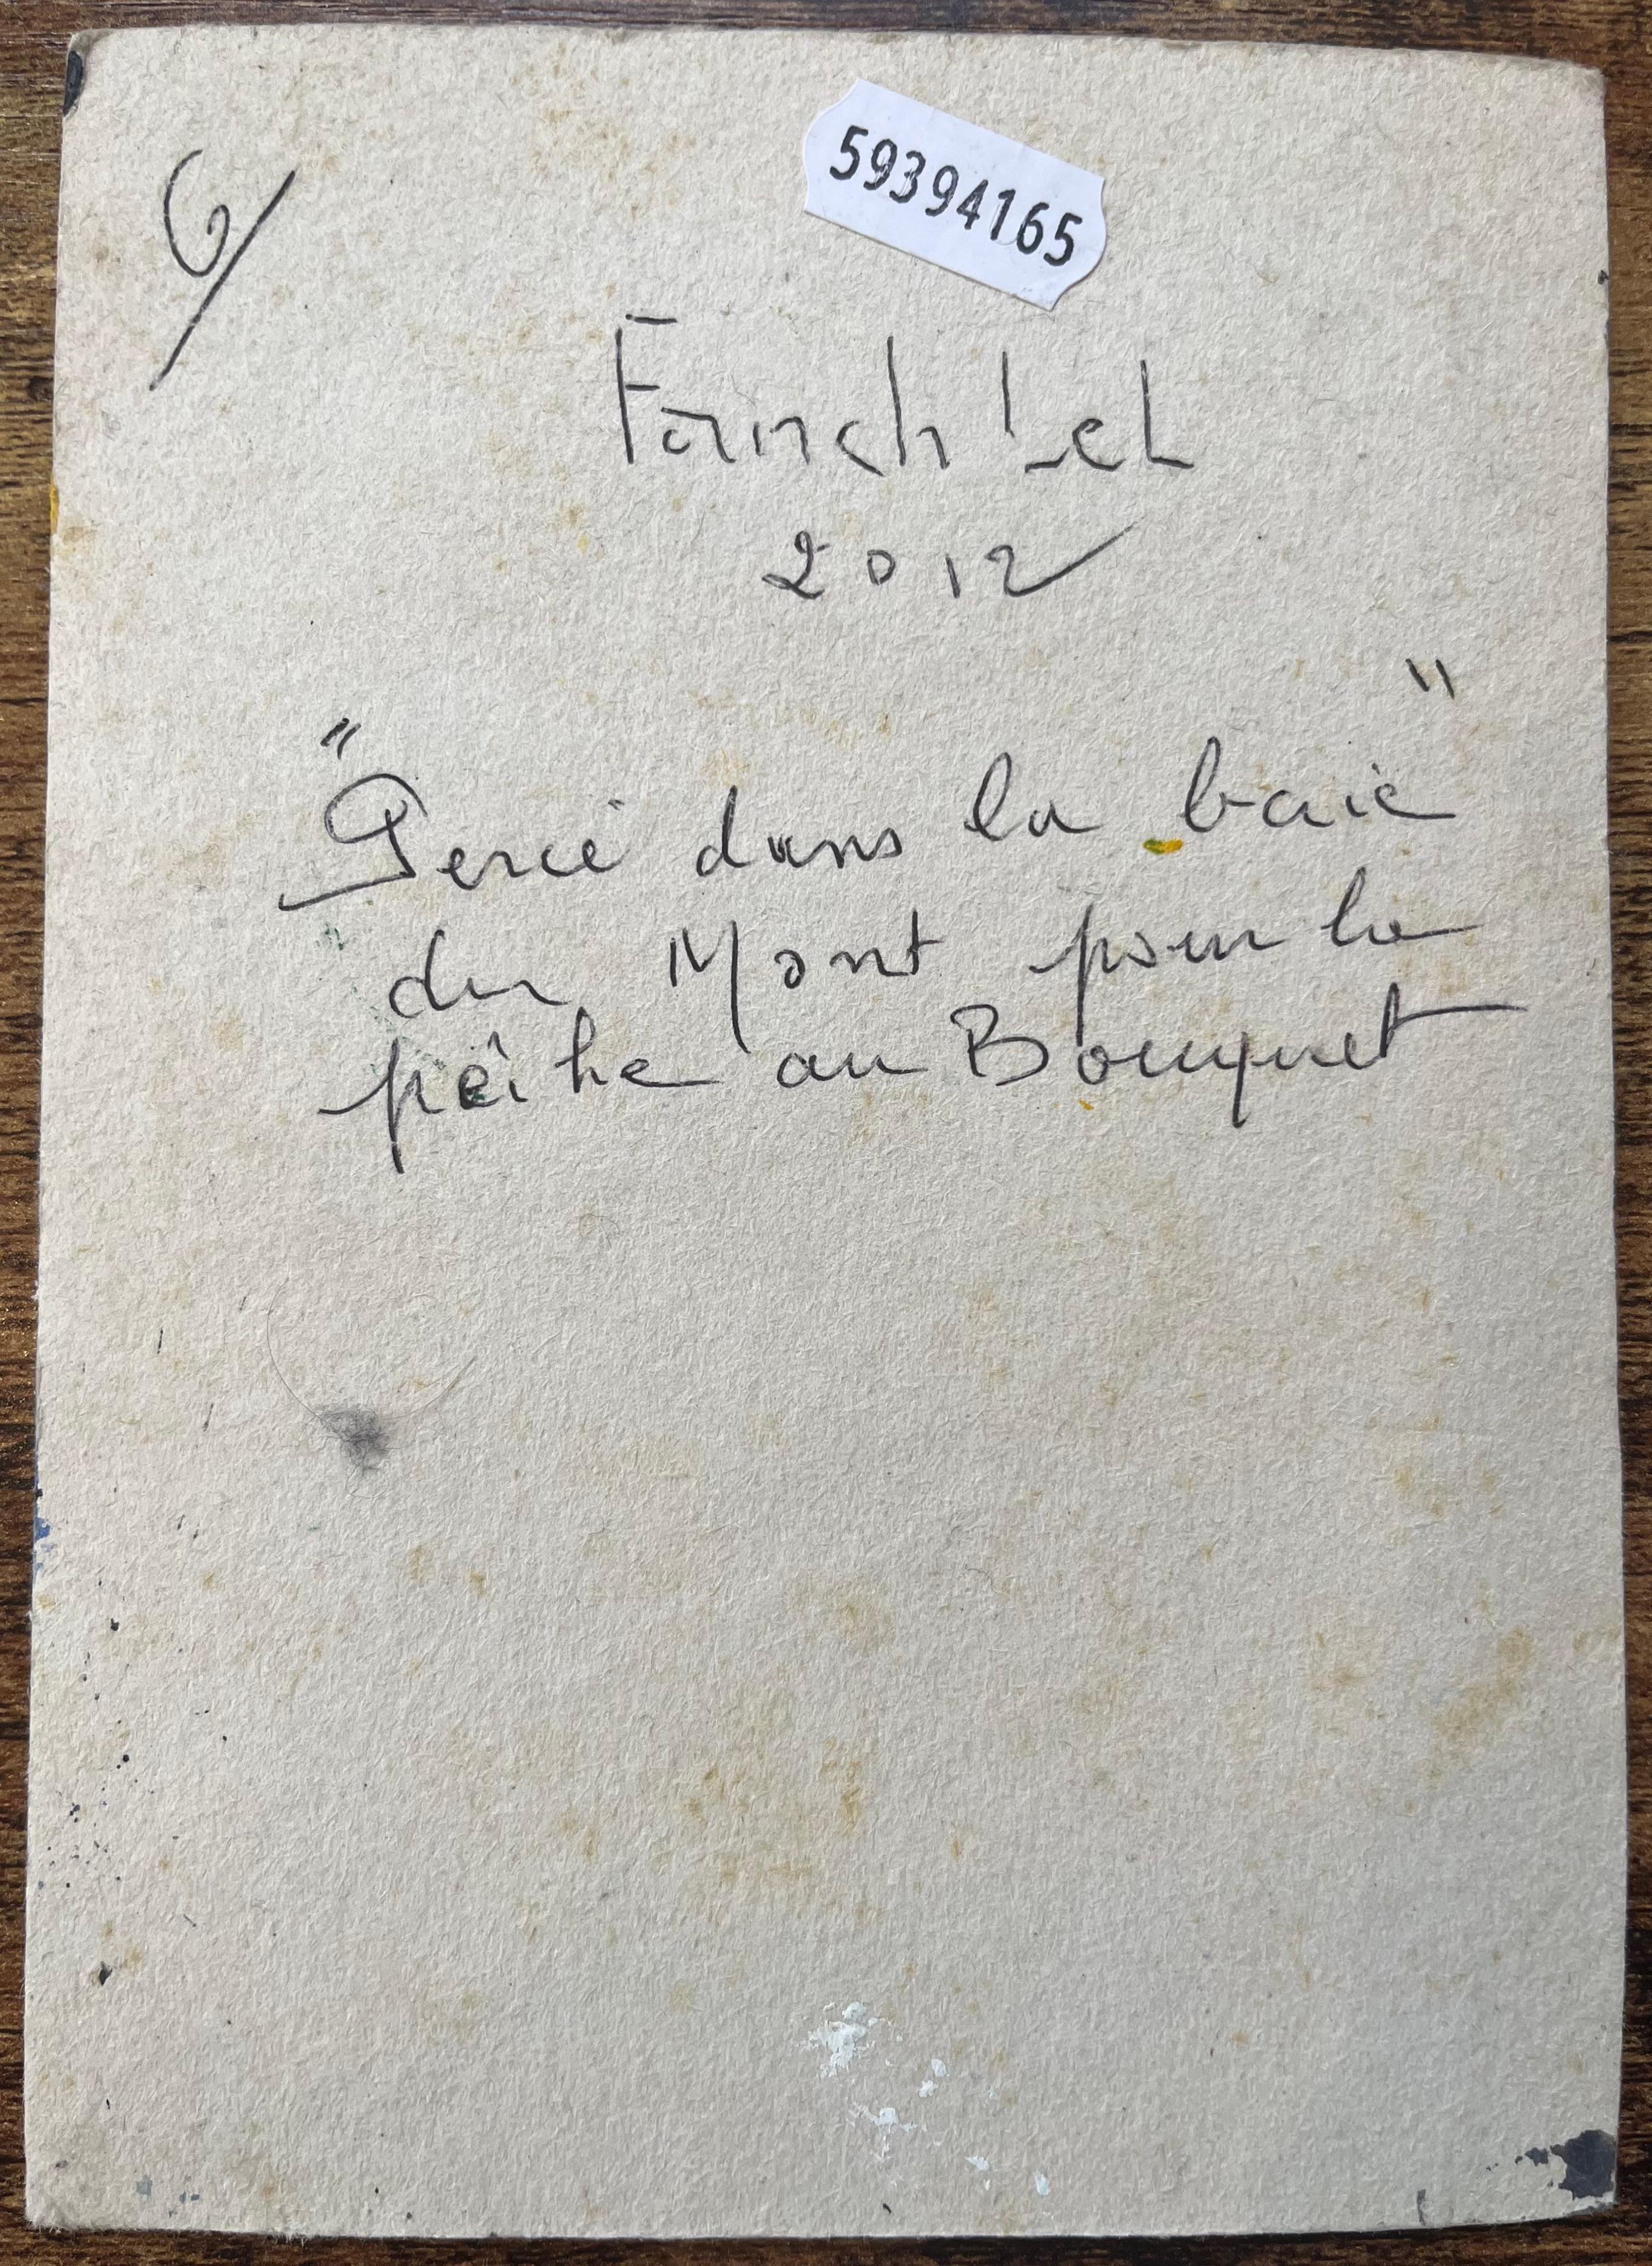 6/
59394165
2012
" "
dans la baie
du Mont pour la
pêche au Bouquet